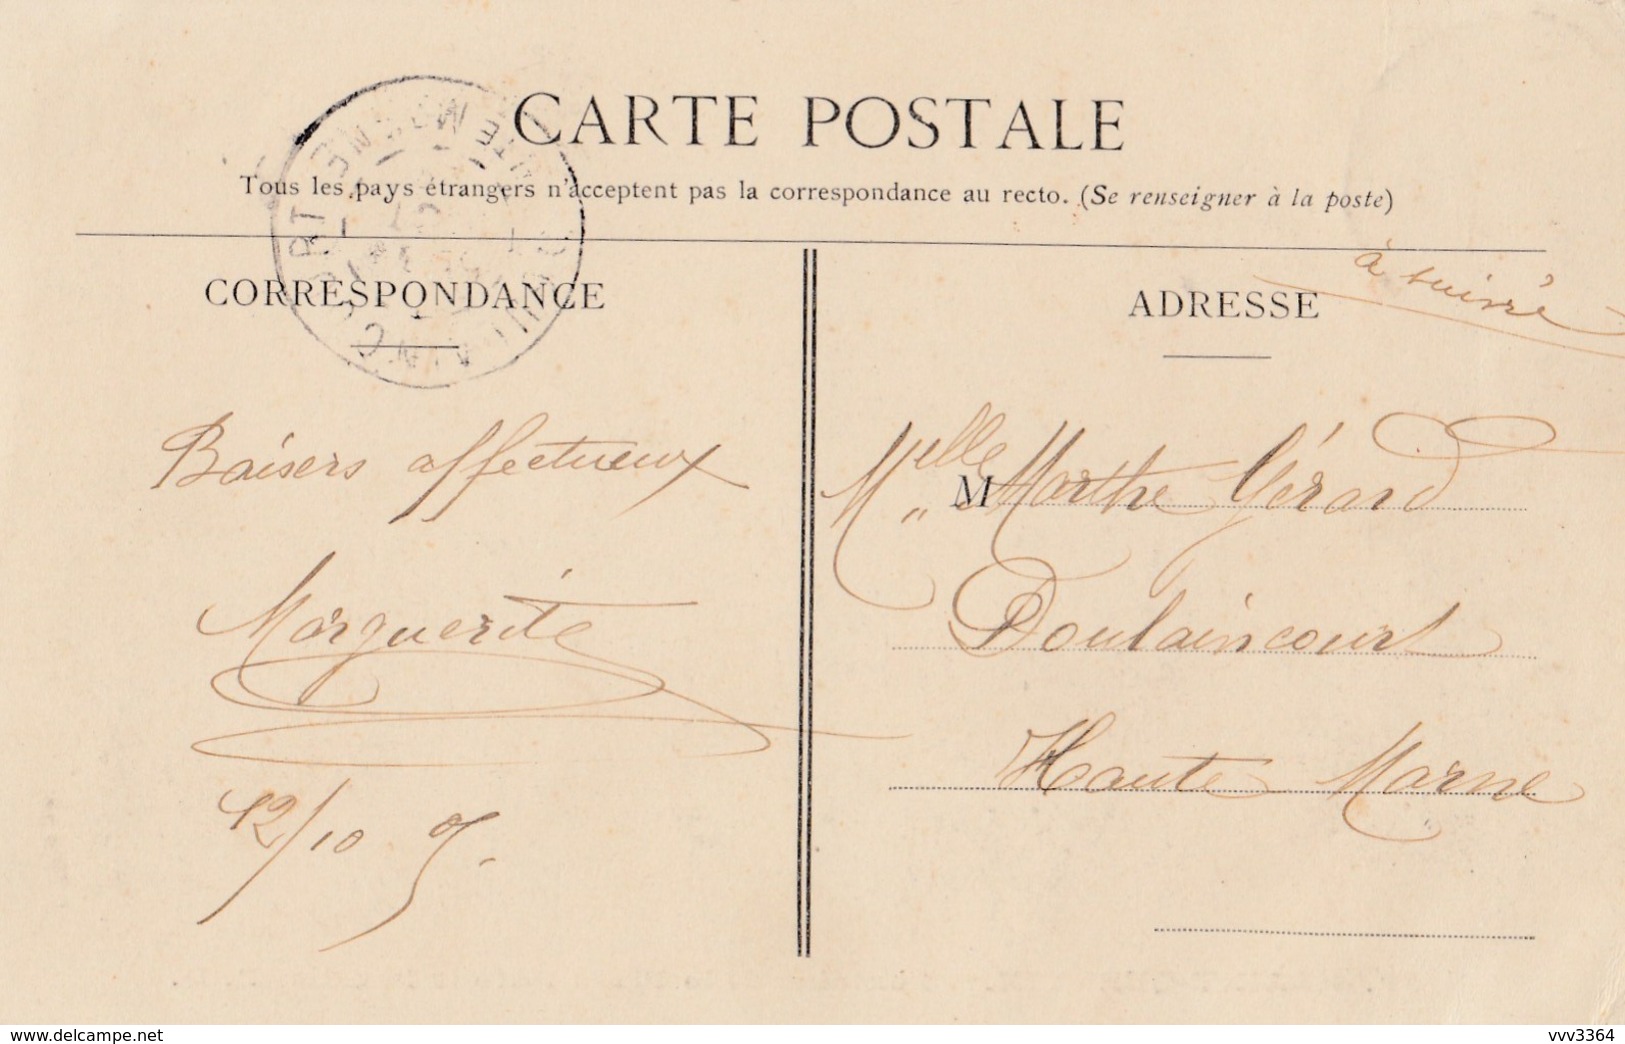 CARTE POSTALE
Tous les pays étrangers n'acceptent pas la correspondance au recto. (Se renseigner à la poste)
CORRESPONDANCE
Baisers affectueux
Marguerite
12/10 07.
ADRESSE
à suivre
Melle M Marthe Gérard
Doulaincourt
Haute Marne
delcampe.net
vvv3364